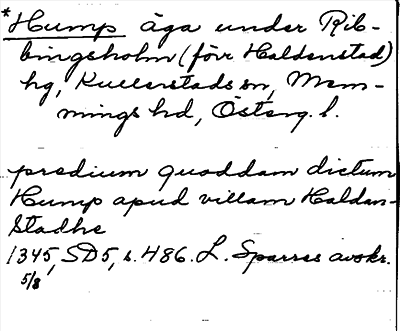 *Hump äga under Rib-
bingsholm (förr Haldenstad)
hg, Kullerstads sn, Mem-
mings hd, Österg. l.
predium quoddam dictum
Hump apud villam Haldan-
stadhe
1345, SD5, s. 486. L. Sparres avskr.
5/8